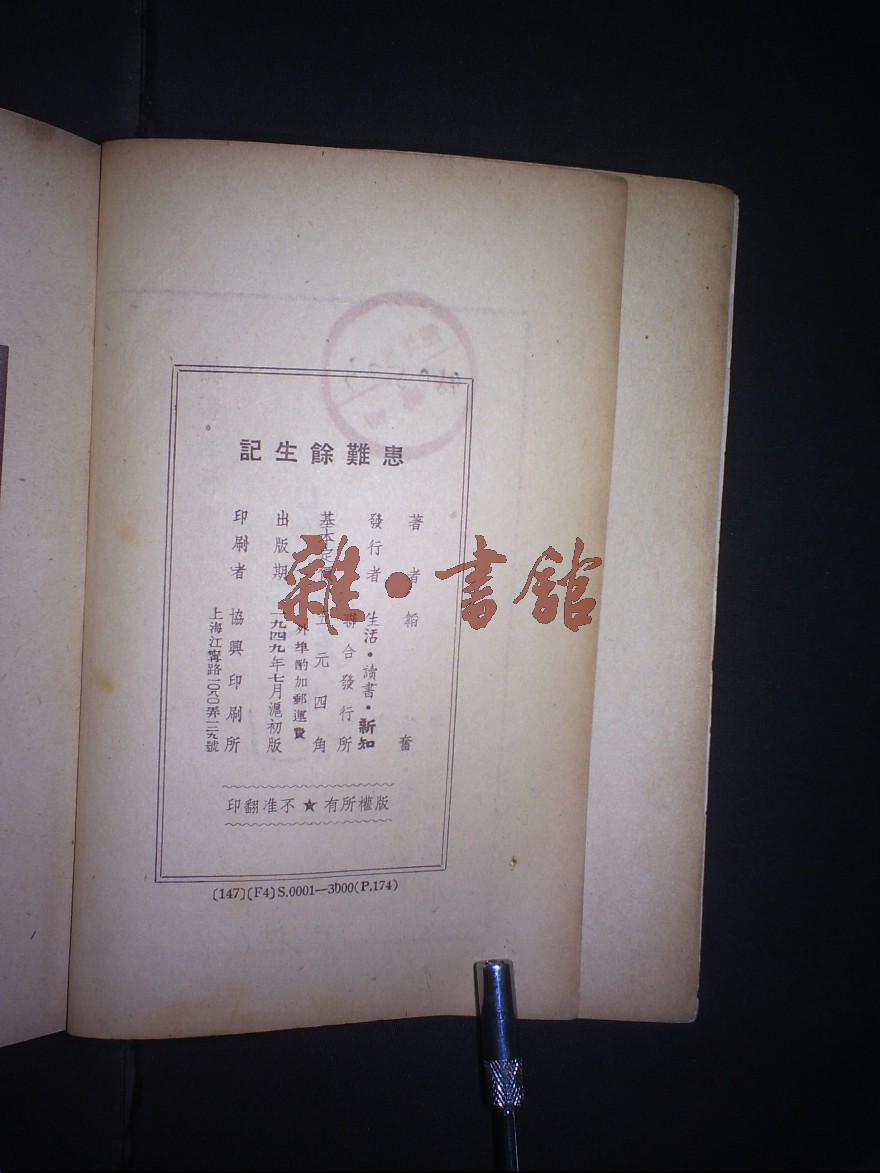 患難餘生記
著者 韜奮
發行者 生活·讀書·新知
聯合發行所
基本定價 五元四角
外埠酌加郵運費
出版期 一九四九年七月滬初版
印刷者 協興印刷所
上海江寧路一〇八〇弄一三九號
版權所有★不准翻印
〔147〕〔F4〕S.0001—3000(P.174)
雜·書館